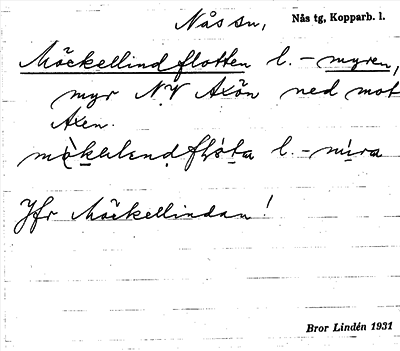 Nås sn,
Nås tg, Kopparb. l.
Möckellindflotten l. -myren,
myr NV Axön ned mot
Axen.
l. -mira
Jfr Möckellindan!
Bror Lindén 1931